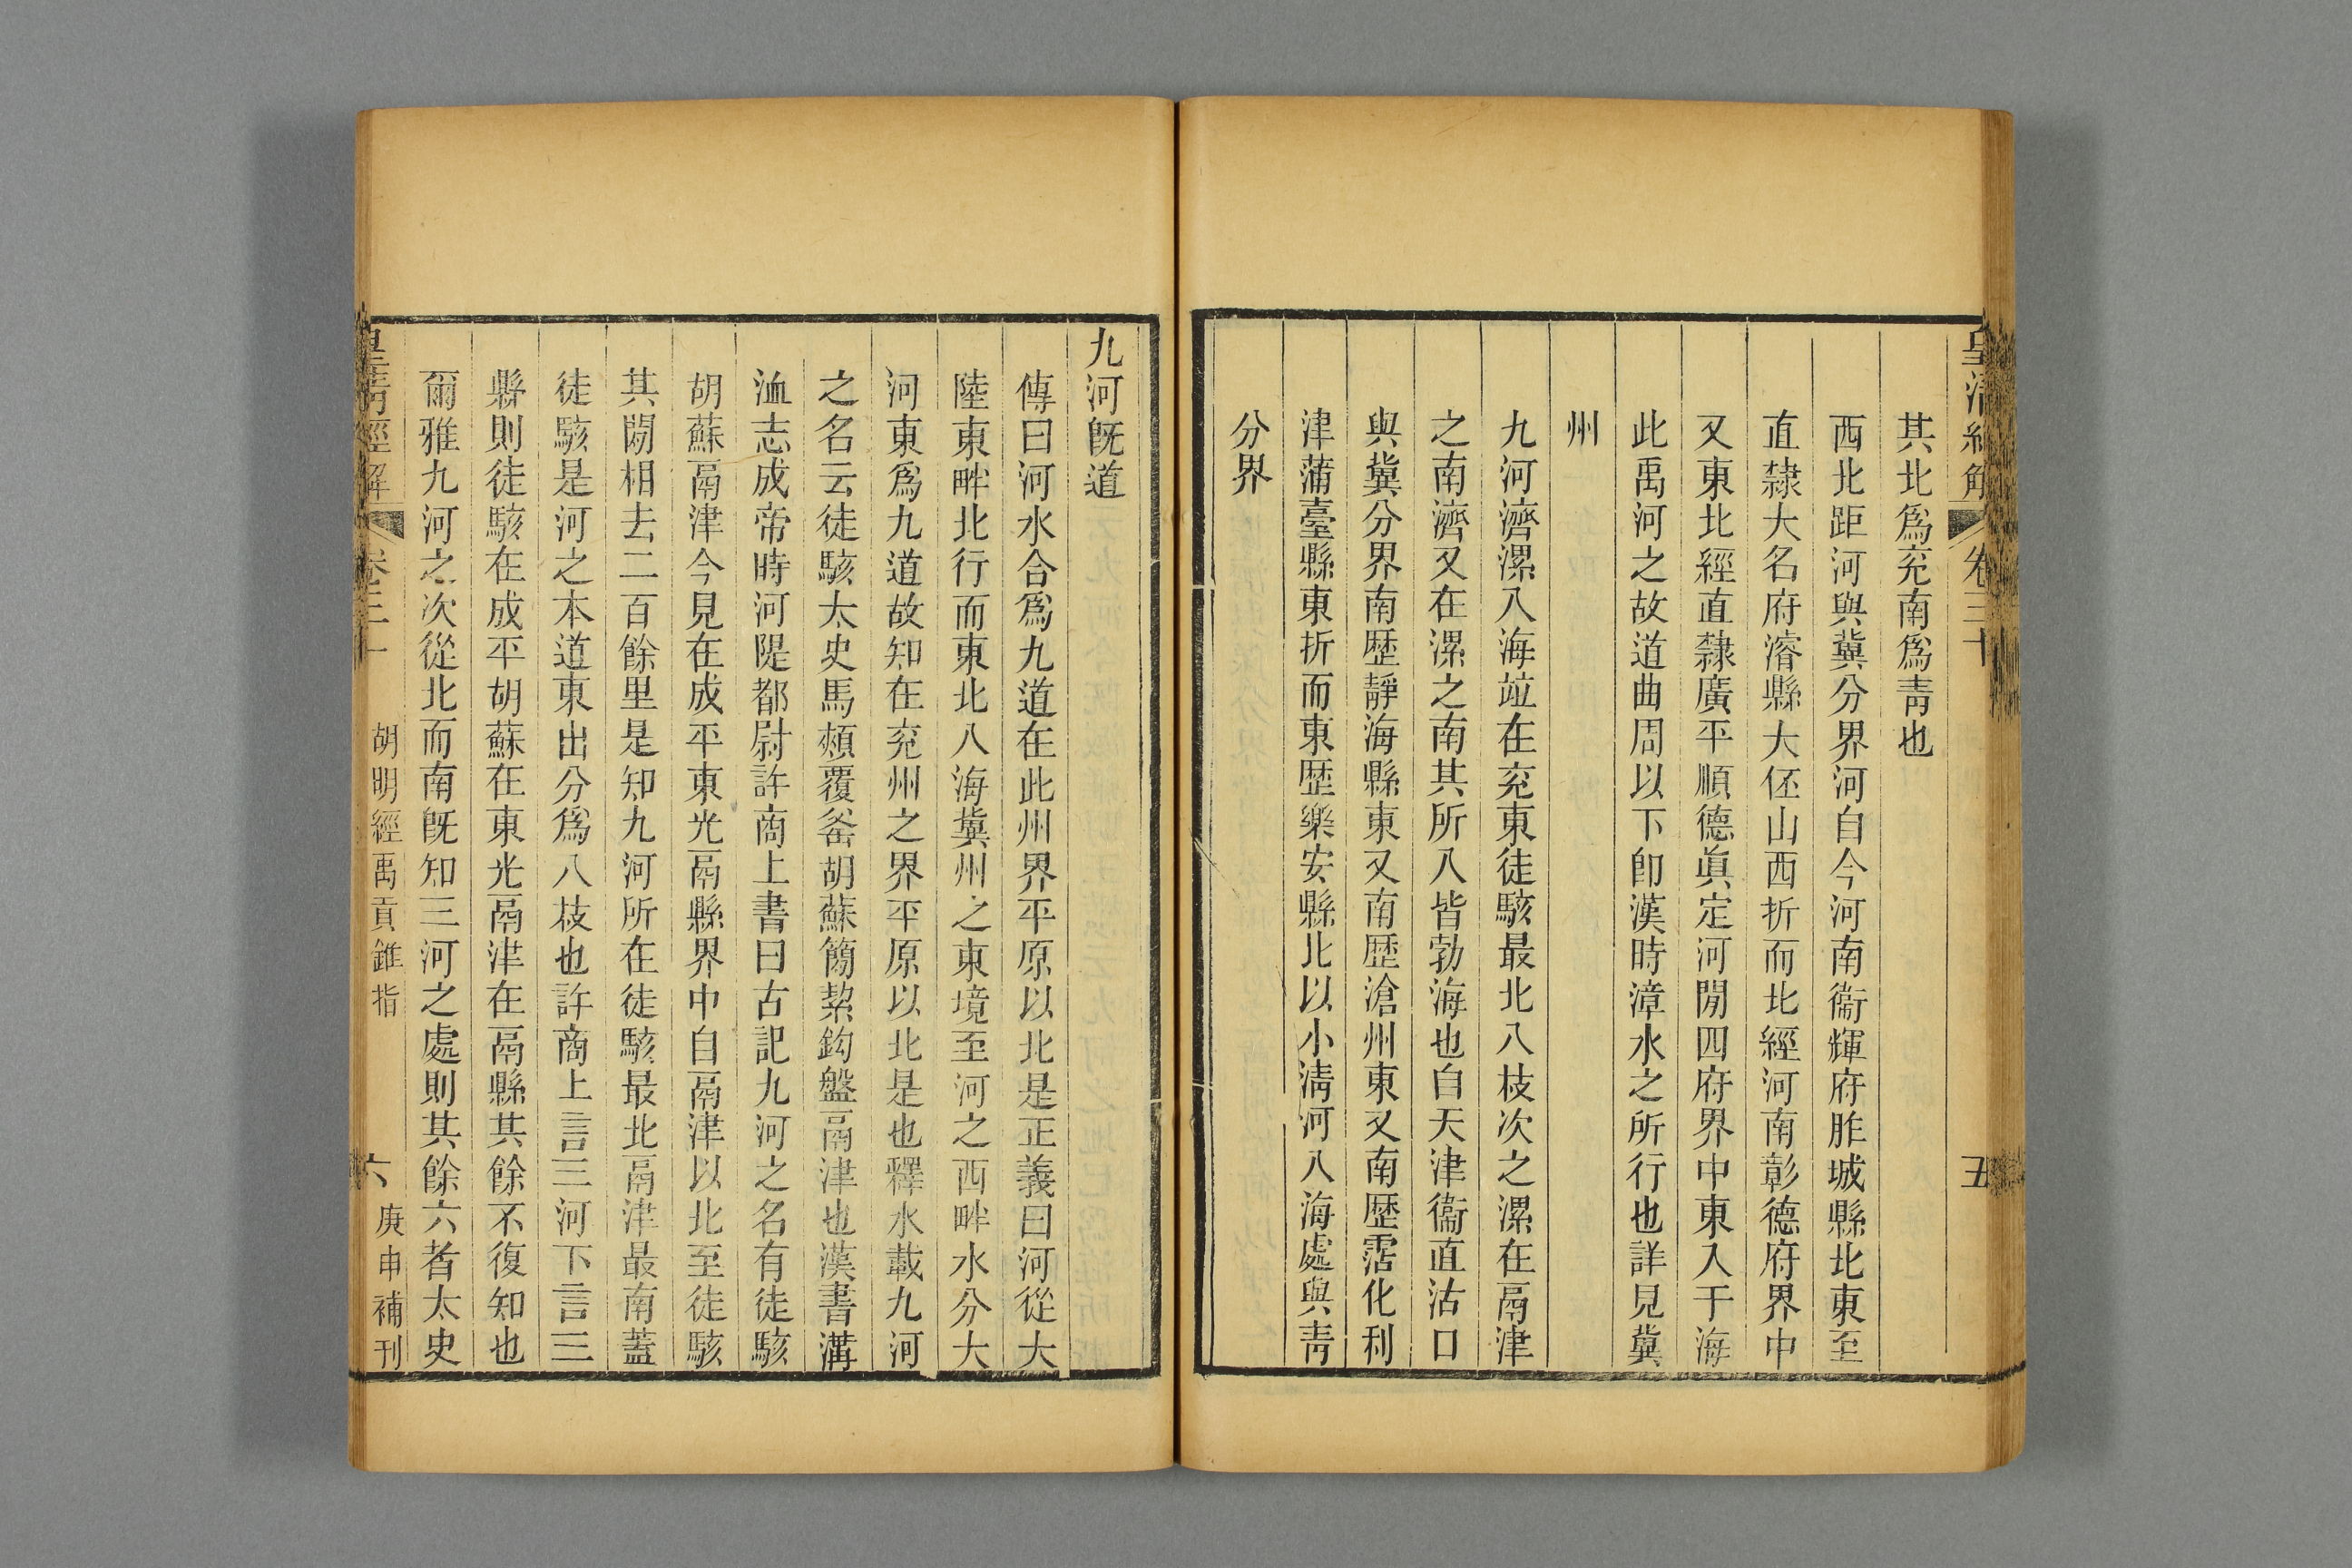 皇清經解 卷三十 五
其北爲兖南爲靑也
西北距河與冀分界河自今河南衞輝府胙城縣北東至
直隸大名府濬縣大伾山西折而北經河南彰德府界中
又東北經直隸廣平順德眞定河閒四府界中東入于海
此禹河之故道曲周以下卽漢時漳水之所行也詳見冀
州
九河濟漯入海竝在兖東徒駭最北八枝次之漯在鬲津
之南濟又在漯之南其所入皆勃海也自天津衞直沽口
與冀分界南歷靜海縣東又南歷滄州東又南歷霑化利
津蒲臺縣東折而東歷樂安縣北以小淸河入海處與靑
分界
九河旣道
傳曰河水合爲九道在此州界平原以北是正義曰河從大
陸東畔北行而東北入海冀州之東境至河之西畔水分大
河東爲九道故知在兖州之界平原以北是也釋水載九河
之名云徒駭太史馬頰覆釜胡蘇簡絜鈎盤鬲津也漢書溝
洫志成帝時河隄都尉許商上書曰古記九河之名有徒駭
胡蘇鬲津今見在成平東光鬲縣界中自鬲津以北至徒駭
其閒相去二百餘里是知九河所在徒駭最北鬲津最南蓋
徒駭是河之本道東出分爲八枝也許商上言三河下言三
縣則徒駭在成平胡蘇在東光鬲津在鬲縣其餘不復知也
爾雅九河之次從北而南旣知三河之處則其餘六者太史
皇清經解 卷三十 胡明經禹貢錐指 六 庚申補刊